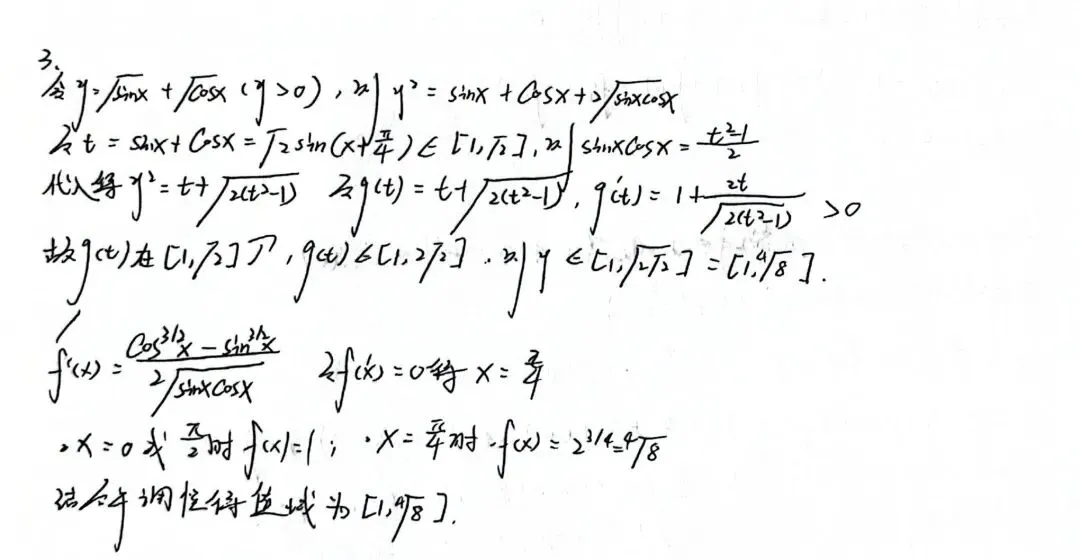 3.
令y=√sinx + √cosx (y>0), 则 y² = sinx + Cosx + 2√sinxcosx
令 t = sinx + Cosx = √2 sin(x+π/4) ∈ [1,√2], 则 sinxCosx = (t²-1)/2
代入得 y² = t+√2(t²-1) 令g(t) = t+√2(t²-1), g'(t) = 1+2t/√2(t²-1) >0
故g(t)在[1,√2]↗, g(t)∈[1,2√2]. 则 y ∈[1,√2√2] = [1,⁴√8].
f'(x) = (Cos^3/2 x - sin^3/2 x)/(2√sinxCosx) 令f'(x)=0得 x=π/4
·x=0或π/2时 f(x)=1; ·x=π/4时·f(x)=2^3/4=⁴√8
结合单调性得值域为[1,⁴√8].